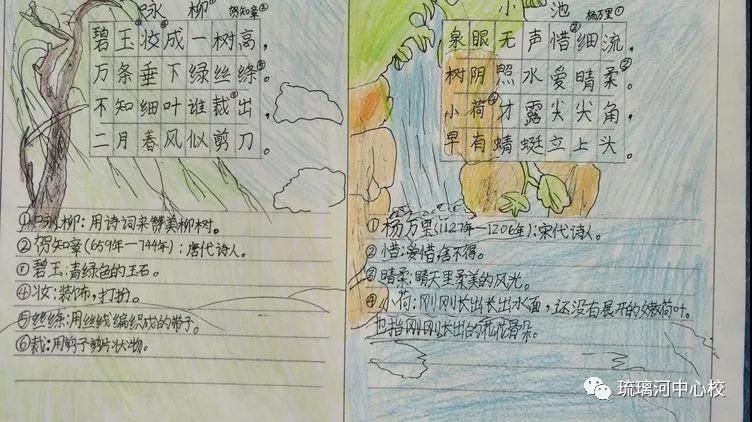 咏柳 贺知章②
碧玉妆成一树高,
万条垂下绿丝绦。
不知细叶谁裁出,
二月春风似剪刀。
①咏柳:用诗词来赞美柳树。
②贺知章(659年—744年):唐代诗人。
③碧玉:青绿色的玉石。
④妆:装饰,打扮。
⑤丝绦:用丝线编织成的带子。
⑥裁:用剪子剪片状物。
小池 杨万里①
泉眼无声惜②细流,
树阴照水爱晴柔③。
小荷④才露尖尖角,
早有蜻蜓立上头。
①杨万里(1127年—1206年):宋代诗人。
②惜:爱惜舍不得。
③晴柔:晴天里柔美的风光。
④小荷:刚刚长出长出水面,还没有展开的嫩荷叶。
也指刚刚长出的荷花骨朵。
琉璃河中心校